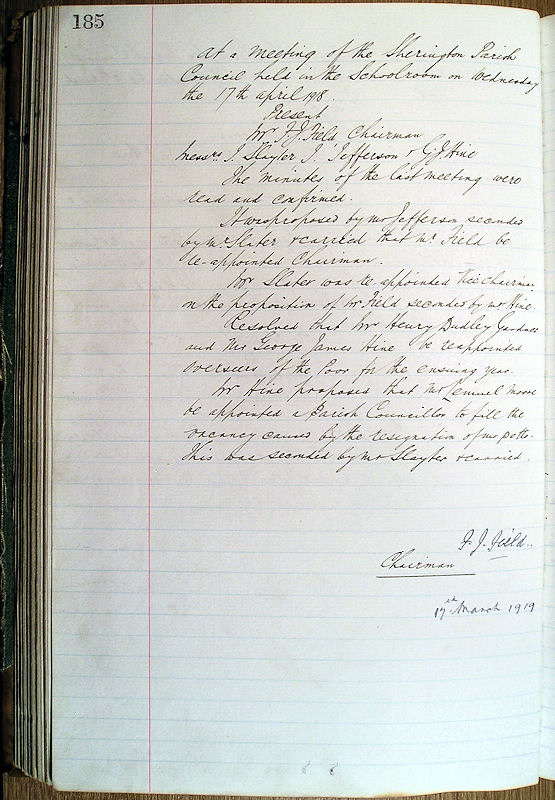 185
At a meeting of the Sherington Parish
Council held in the Schoolroom on Wednesday
the 17th april 1918.
Present
Mr F J Field Chairman
Messrs I. Slayter J. Jefferson & G J Hine
The minutes of the last meeting were
read and confirmed.
It was proposed by Mr Jefferson seconded
by Mr Slater & carried that Mr Field be
re-appointed Chairman.
Mr Slater was re-appointed Vice Chairman
on the proposition of Mr Field seconded by Mr Hine.
Resolved that Mr Henry Dudley Gardner
and Mr George James Hine be reappointed
overseers of the Poor for the ensuing year.
Mr Hine proposed that Mr Moore
be appointed a Parish Councillor to fill the
vacancy caused by the resignation of Mr Petts.
This was seconded by Mr Slayter & carried.
F. J. Field.
Chairman
17th March 1919